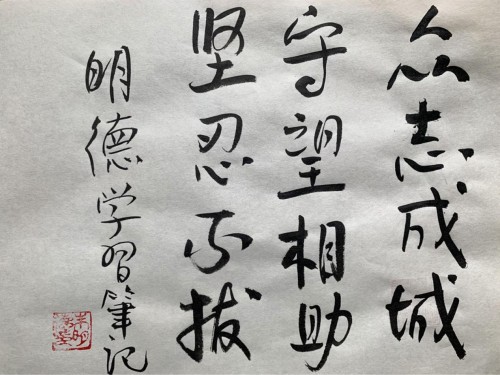 众志成城
守望相助
坚忍不拔
明德学习筆记